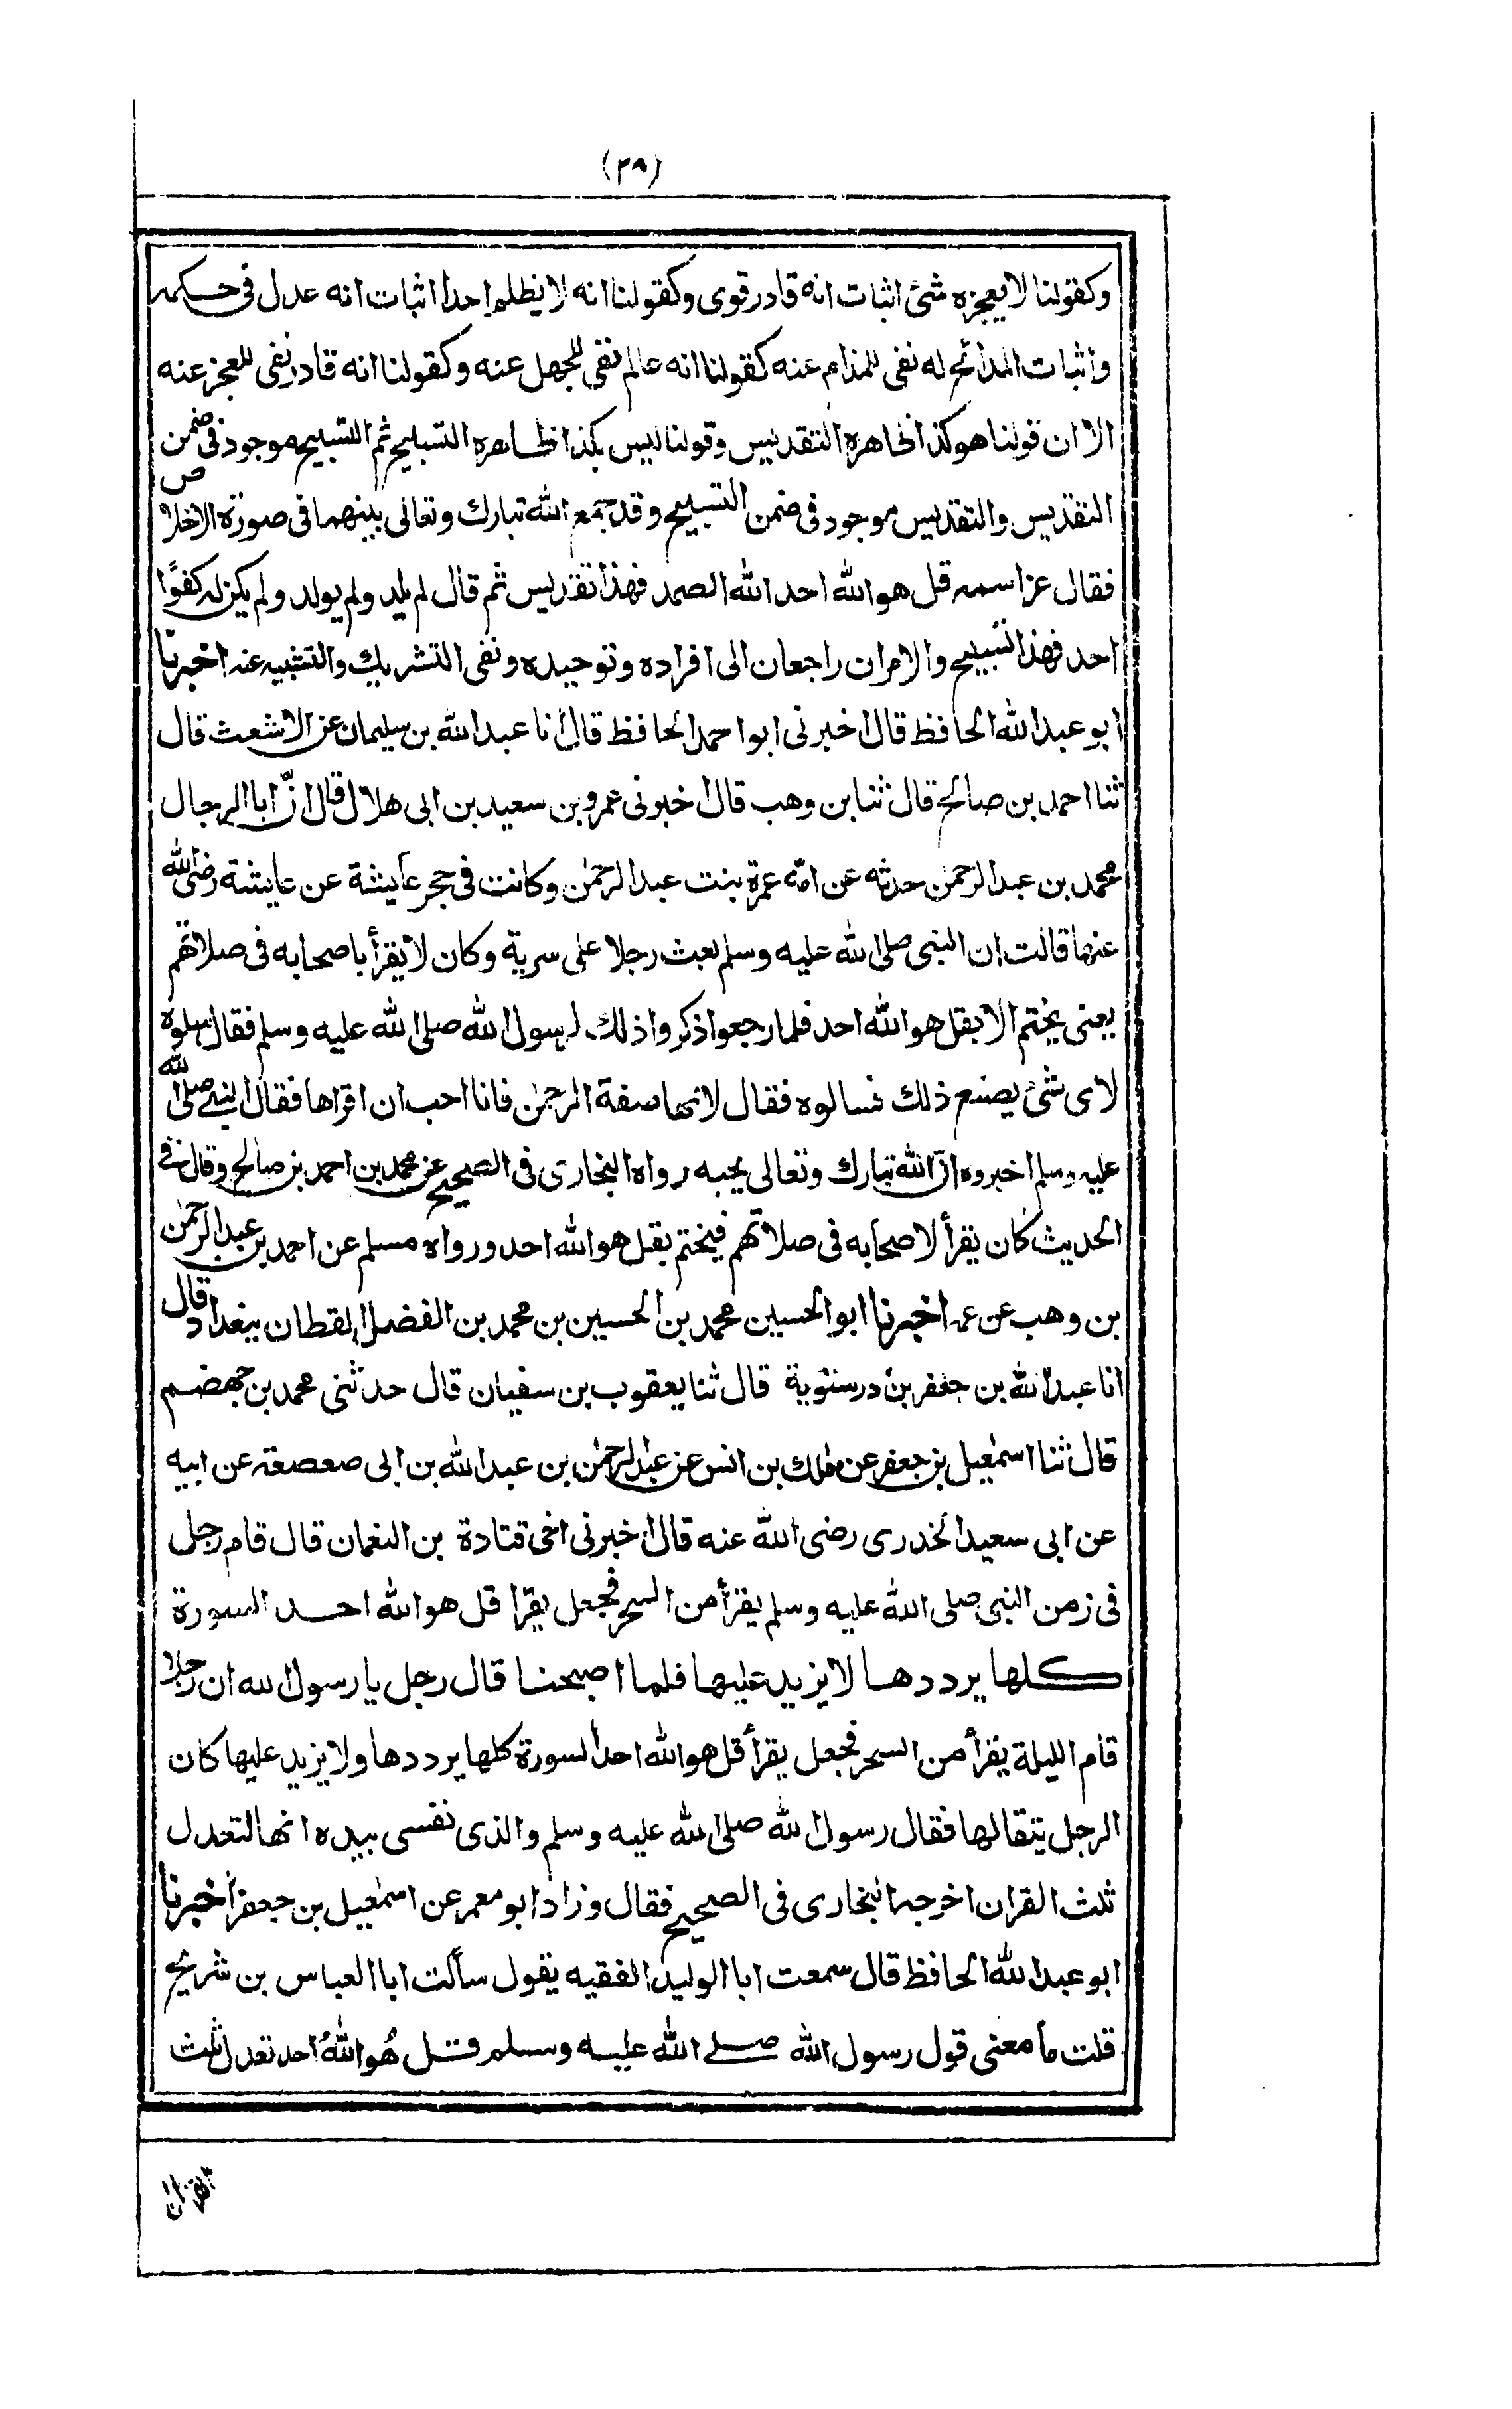 (٢٨)
وكقولنا لا يعجزه شئ اثبات انه قادر قوى وكقولنا انه لا يظلم احدا اثبات انه عدل فى حكمه
واثبات المدائح له نفى للمذام عنه كقولنا انه عالم نفى للجهل عنه وكقولنا انه قادر نفى للعجز عنه
الا ان قولنا هو كذا ظاهره التقديس وقولنا ليس بكذا ظاهره التسبيح ثم التسبيح موجود فى ضمن
التقديس والتقديس موجود فى ضمن التسبيح وقد جمع الله تبارك وتعالى بينهما فى صورة الاخلاص
فقال عز اسمه قل هو الله احد الله الصمد فهذا تقديس ثم قال لم يلد ولم يولد ولم يكن له كفوًا
احد فهذا تسبيح والامران راجعان الى افراده وتوحيده ونفى التشريك والتشبيه عنه اخبرنا
ابو عبد الله الحافظ قال اخبرنى ابو احمد الحافظ قال أنا عبد الله بن سليمان عن الاشعث قال
ثنا احمد بن صالح قال ثنا بن وهب قال اخبرنى عمرو بن سعيد بن ابى هلال قال انّ ابا الرجال
محمد بن عبد الرحمن حدثه عن امّه عمرة بنت عبد الرحمٰن وكانت فى حجر عايشة عن عايشة رضى الله
عنها قالت ان النبى صلى الله عليه وسلم بعث رجلا على سرية وكان لا يقرأ باصحابه فى صلاتهم
يعنى يختم الا بقل هو الله احد فلما رجعوا ذكروا ذلك لرسول الله صلى الله عليه وسلم فقال سلوه
لاى شئ يصنع ذلك فسالوه فقال لانها صفة الرحمٰن فانا احب ان اقراها فقال النبى صلى الله
عليه وسلم اخبروه انّ الله تبارك وتعالى يحبه رواه البخارى فى الصحيح عن محمد بن احمد بن صالح وقال فى
الحديث كان يقرأ لاصحابه فى صلاتهم فيختم بقل هو الله احد ورواه مسلم عن احمد بن عبد الرحمٰن
بن وهب عن عمه اخبرنا ابو الحسين محمد بن الحسين بن محمد بن الفضل القطان ببغداد قال
انا عبد الله بن جعفر بن درستوية قال ثنا يعقوب بن سفيان قال حدثنى محمد بن جهضم
قال ثنا اسمٰعيل بن جعفر عن مٰلك بن انس عن عبد الرحمٰن بن عبد الله بن ابى صعصعة عن ابيه
عن ابى سعيد الخدرى رضى الله عنه قال اخبرنى اخى قتادة بن النعمان قال قام رجل
فى زمن النبى صلى الله عليه وسلم يقرأ من السحر فجعل يقرا قل هو الله احد السورة
كلها يرددها لا يزيد عليها فلما اصبحنا قال رجل يا رسول الله ان رجلا
قام الليلة يقرأ من السحر فجعل يقرأ قل هو الله احد السورة كلها يرددها ولا يزيد عليها كان
الرجل يتقالها فقال رسول الله صلى الله عليه وسلم والذى نفسى بيده انها لتعدل
ثلث القران اخرجه البخارى فى الصحيح فقال وزاد ابو معمر عن اسمٰعيل بن جعفر اخبرنا
ابو عبد الله الحافظ قال سمعت ابا الوليد الفقيه يقول سألت ابا العباس بن شريح
قلت ما معنى قول رسول الله صلى الله عليه وسلم قل هُو اللهُ احد تعدل ثلث
القران